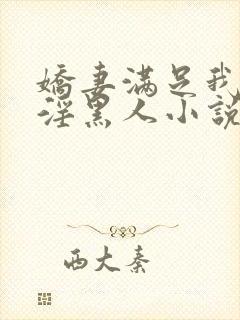 嬌妻滿足我
淫黑人小說
西大秦